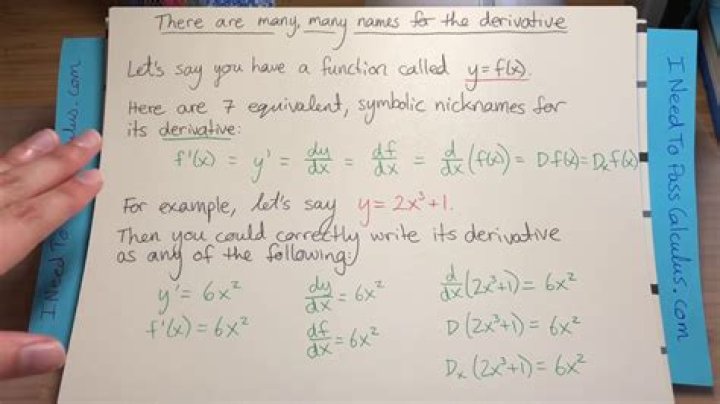 There are many, many names for the derivative
Let's say you have a function called y=f(x).
Here are 7 equivalent, symbolic nicknames for
its derivative:
f'(x) = y' = dy/dx = df/dx = d/dx (f(x)) = Df(x) = Dₓf(x)
For example, let's say y = 2x³+1.
Then you could correctly write its derivative
as any of the following:
y' = 6x²
f'(x) = 6x²
dy/dx = 6x²
df/dx = 6x²
d/dx (2x³+1) = 6x²
D (2x³+1) = 6x²
Dₓ (2x³+1) = 6x²
I Need To ulus.com
I Need To Pass Calculus.com